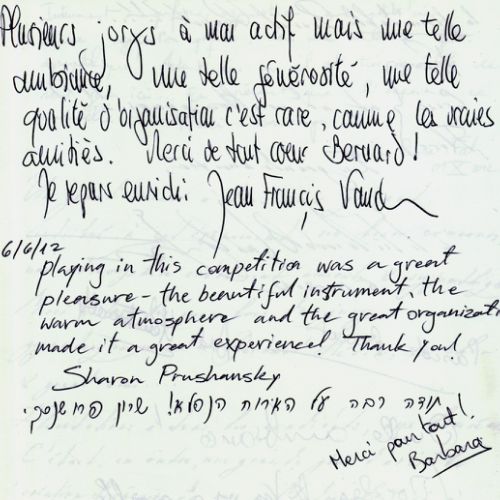 Plusieurs jurys à mon actif mais une telle
ambiance, une telle générosité, une telle
qualité d'organisation c'est rare, comme les vraies
amitiés. Merci de tout coeur Bernard!
Je repars enrichi. Jean François
6/6/12
playing in this competition was a great
pleasure - the beautiful instrument, the
warm atmosphere and the great organizati
made it a great experience! Thank you!
Sharon Prushansky
תודה רבה על האירוח הנפלא! שרון פרושנסקי
Merci pour tout!
Barbara